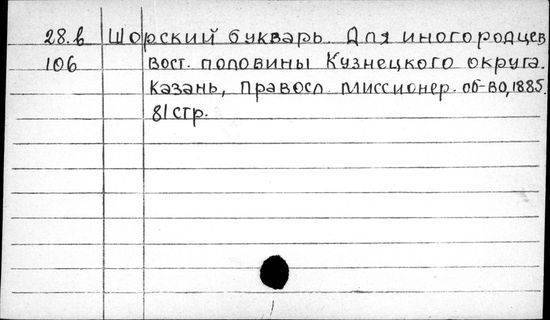 28.в Шорский букварь. Для инородцев
106 вост. половины Кузнецкого округа.
Казань, Правосл. миссионер. об-во, 1885.
81 стр.